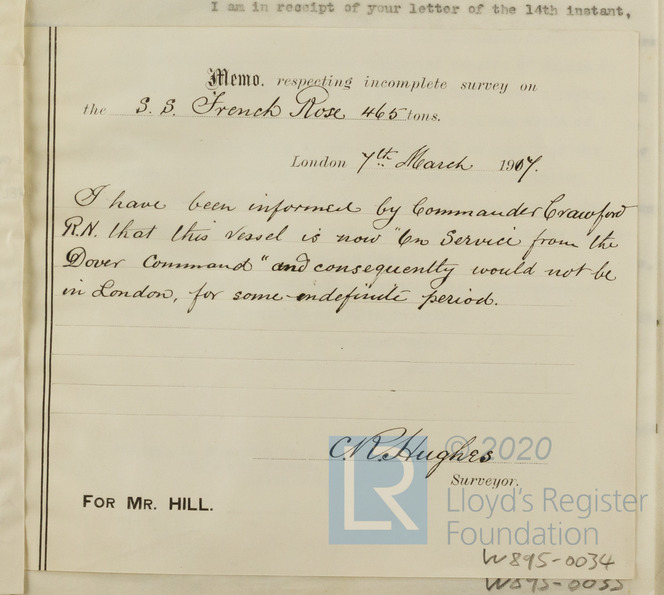 I am in receipt of your letter of the 14th instant,
Memo. respecting incomplete survey on
the S. S. French Rose 465 tons.
London 7th March 1917.
I have been informed by Commander Crawford
R.N. that this vessel is now "On Service from the
Dover Command" and consequently would not be
in London, for some indefinite period.
C.R. Hughes
Surveyor.
FOR MR. HILL.
LR
© 2020
Lloyd's Register
Foundation
W895-0034
W895-0035